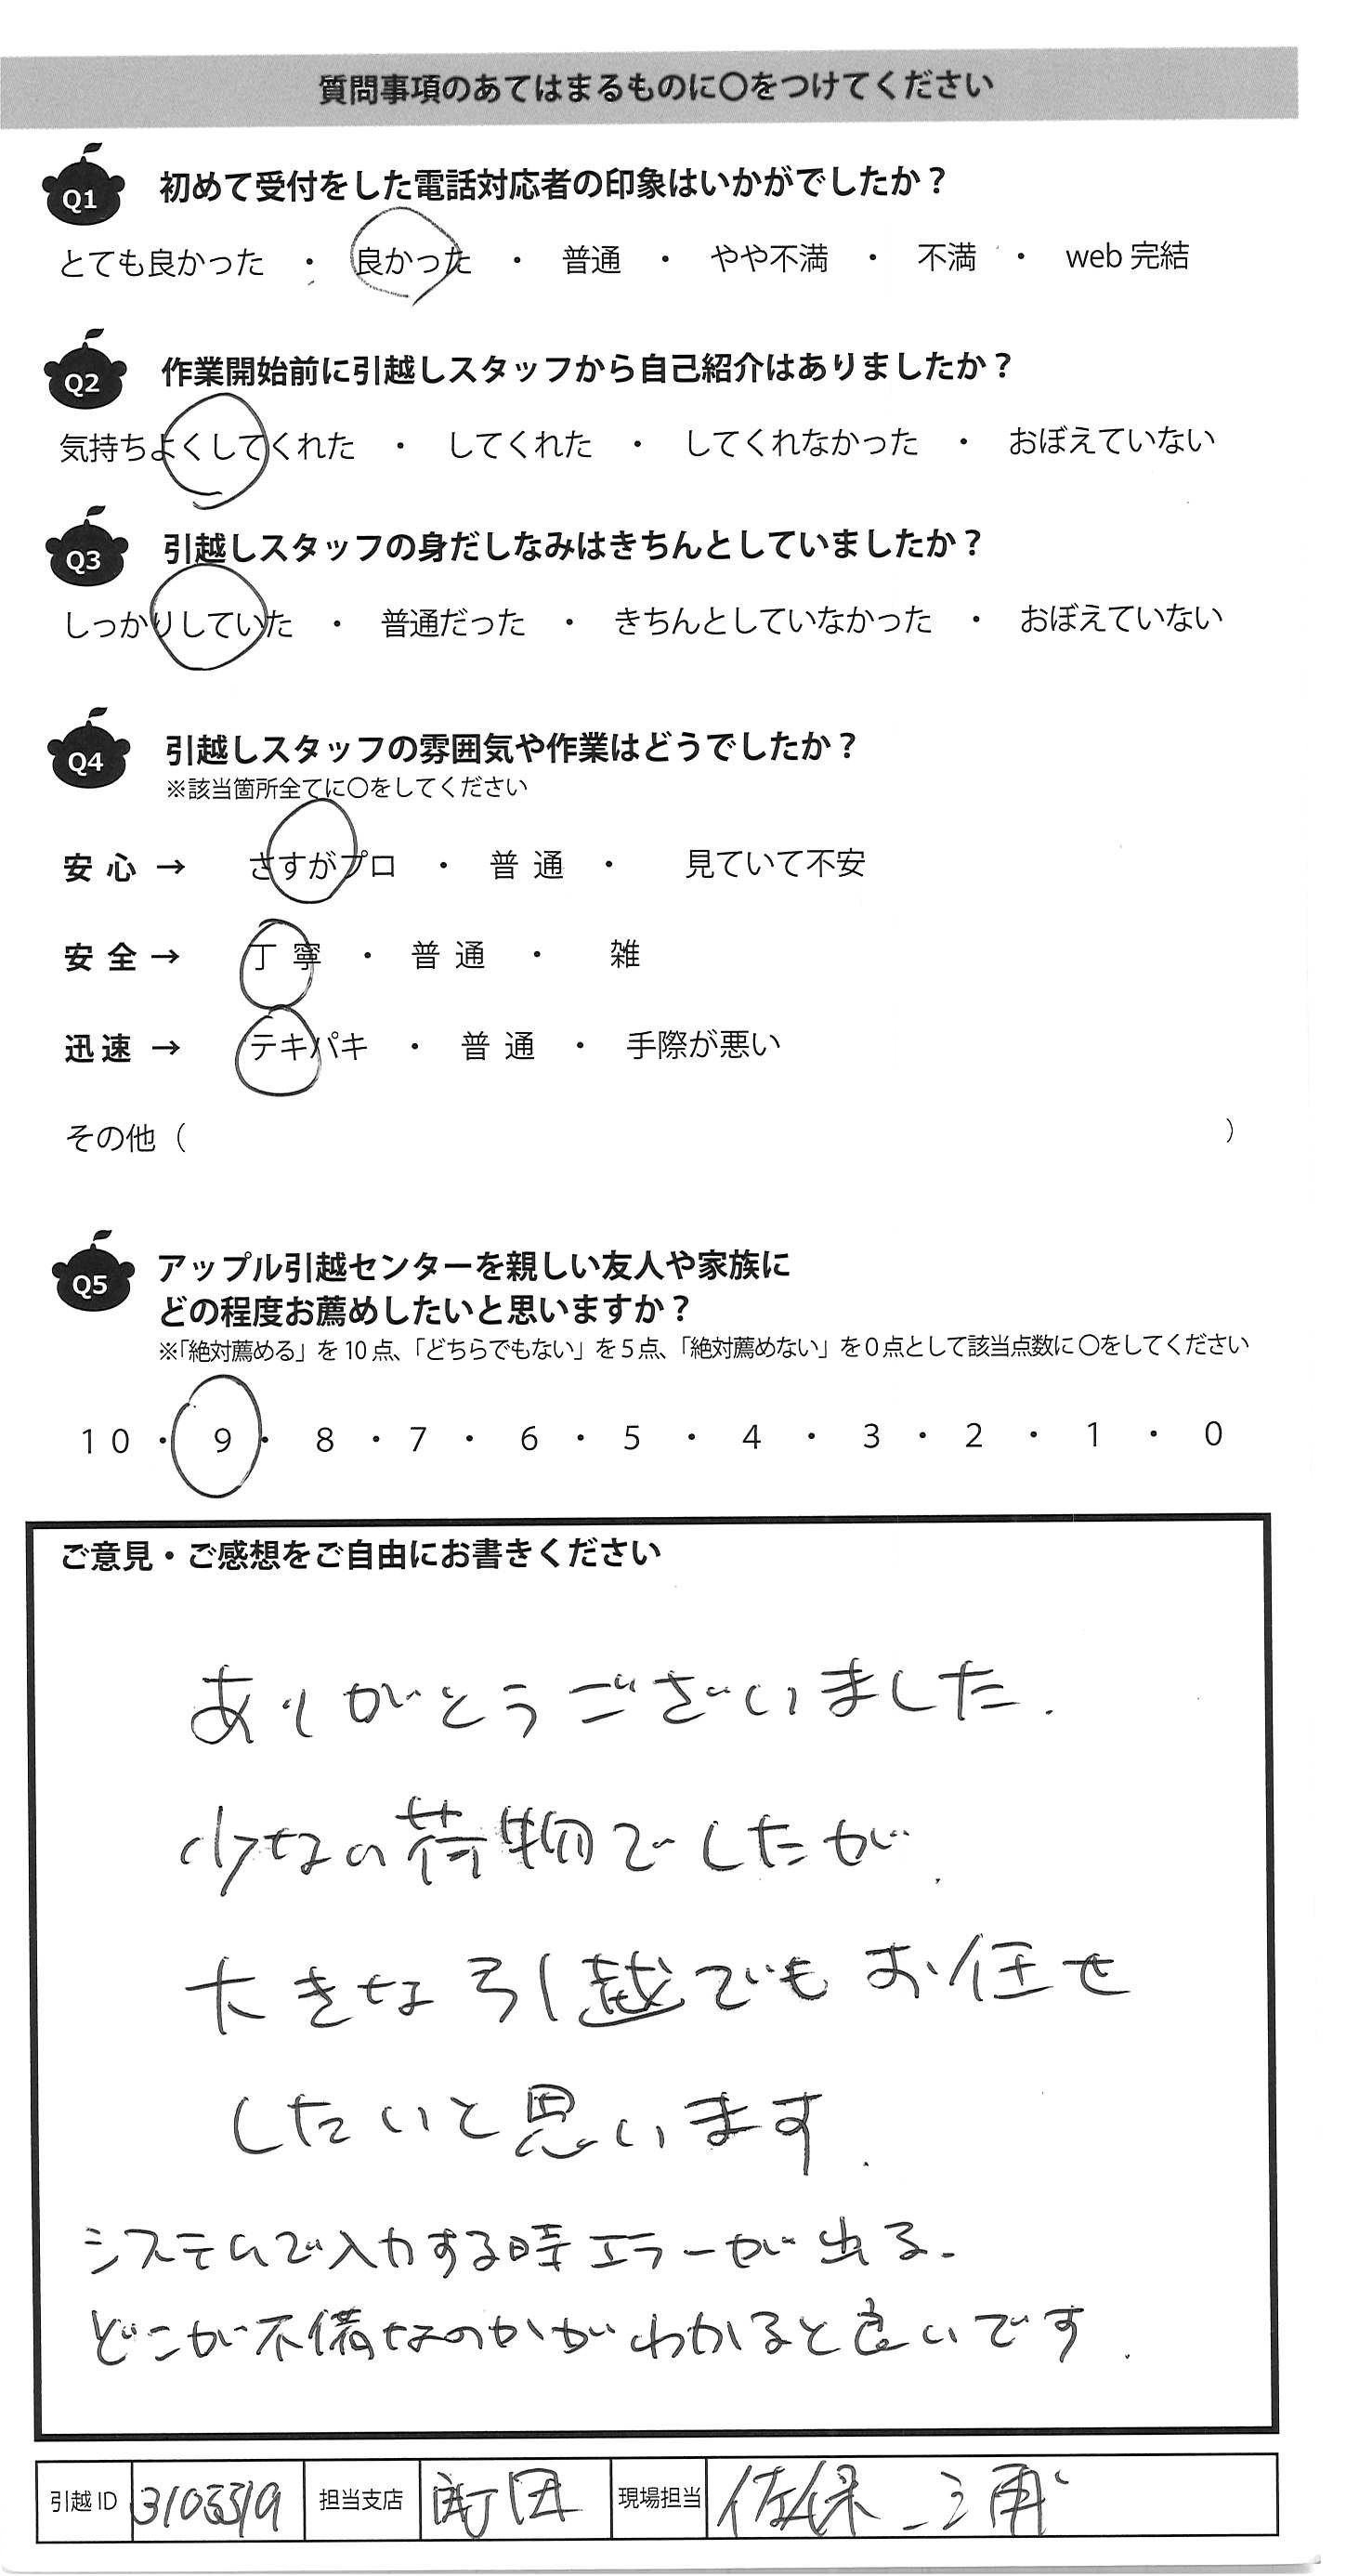 質問事項のあてはまるものに〇をつけてください
Q1 初めて受付をした電話対応者の印象はいかがでしたか？
とても良かった ・ 良かった ・ 普通 ・ やや不満 ・ 不満 ・ web 完結
Q2 作業開始前に引越しスタッフから自己紹介はありましたか？
気持ちよくしてくれた ・ してくれた ・ してくれなかった ・ おぼえていない
Q3 引越しスタッフの身だしなみはきちんとしていましたか？
しっかりしていた ・ 普通だった ・ きちんとしていなかった ・ おぼえていない
Q4 引越しスタッフの雰囲気や作業はどうでしたか？
※該当箇所全てに〇をしてください
安心 → さすがプロ ・ 普通 ・ 見ていて不安
安全 → 丁寧 ・ 普通 ・ 雑
迅速 → テキパキ ・ 普通 ・ 手際が悪い
その他（ ）
Q5 アップル引越センターを親しい友人や家族に
どの程度お薦めしたいと思いますか？
※「絶対薦める」を10点、「どちらでもない」を5点、「絶対薦めない」を0点として該当点数に〇をしてください
10 ・ 9 ・ 8 ・ 7 ・ 6 ・ 5 ・ 4 ・ 3 ・ 2 ・ 1 ・ 0
ご意見・ご感想をご自由にお書きください
ありがとうございました.
少ない荷物でしたが.
大きな引越でもお任せ
したいと思います.
システムで入力する時エラーが出る.
どこが不備なのかがわかると良いです.
引越ID 担当支店 町田 現場担当 佐保 三浦